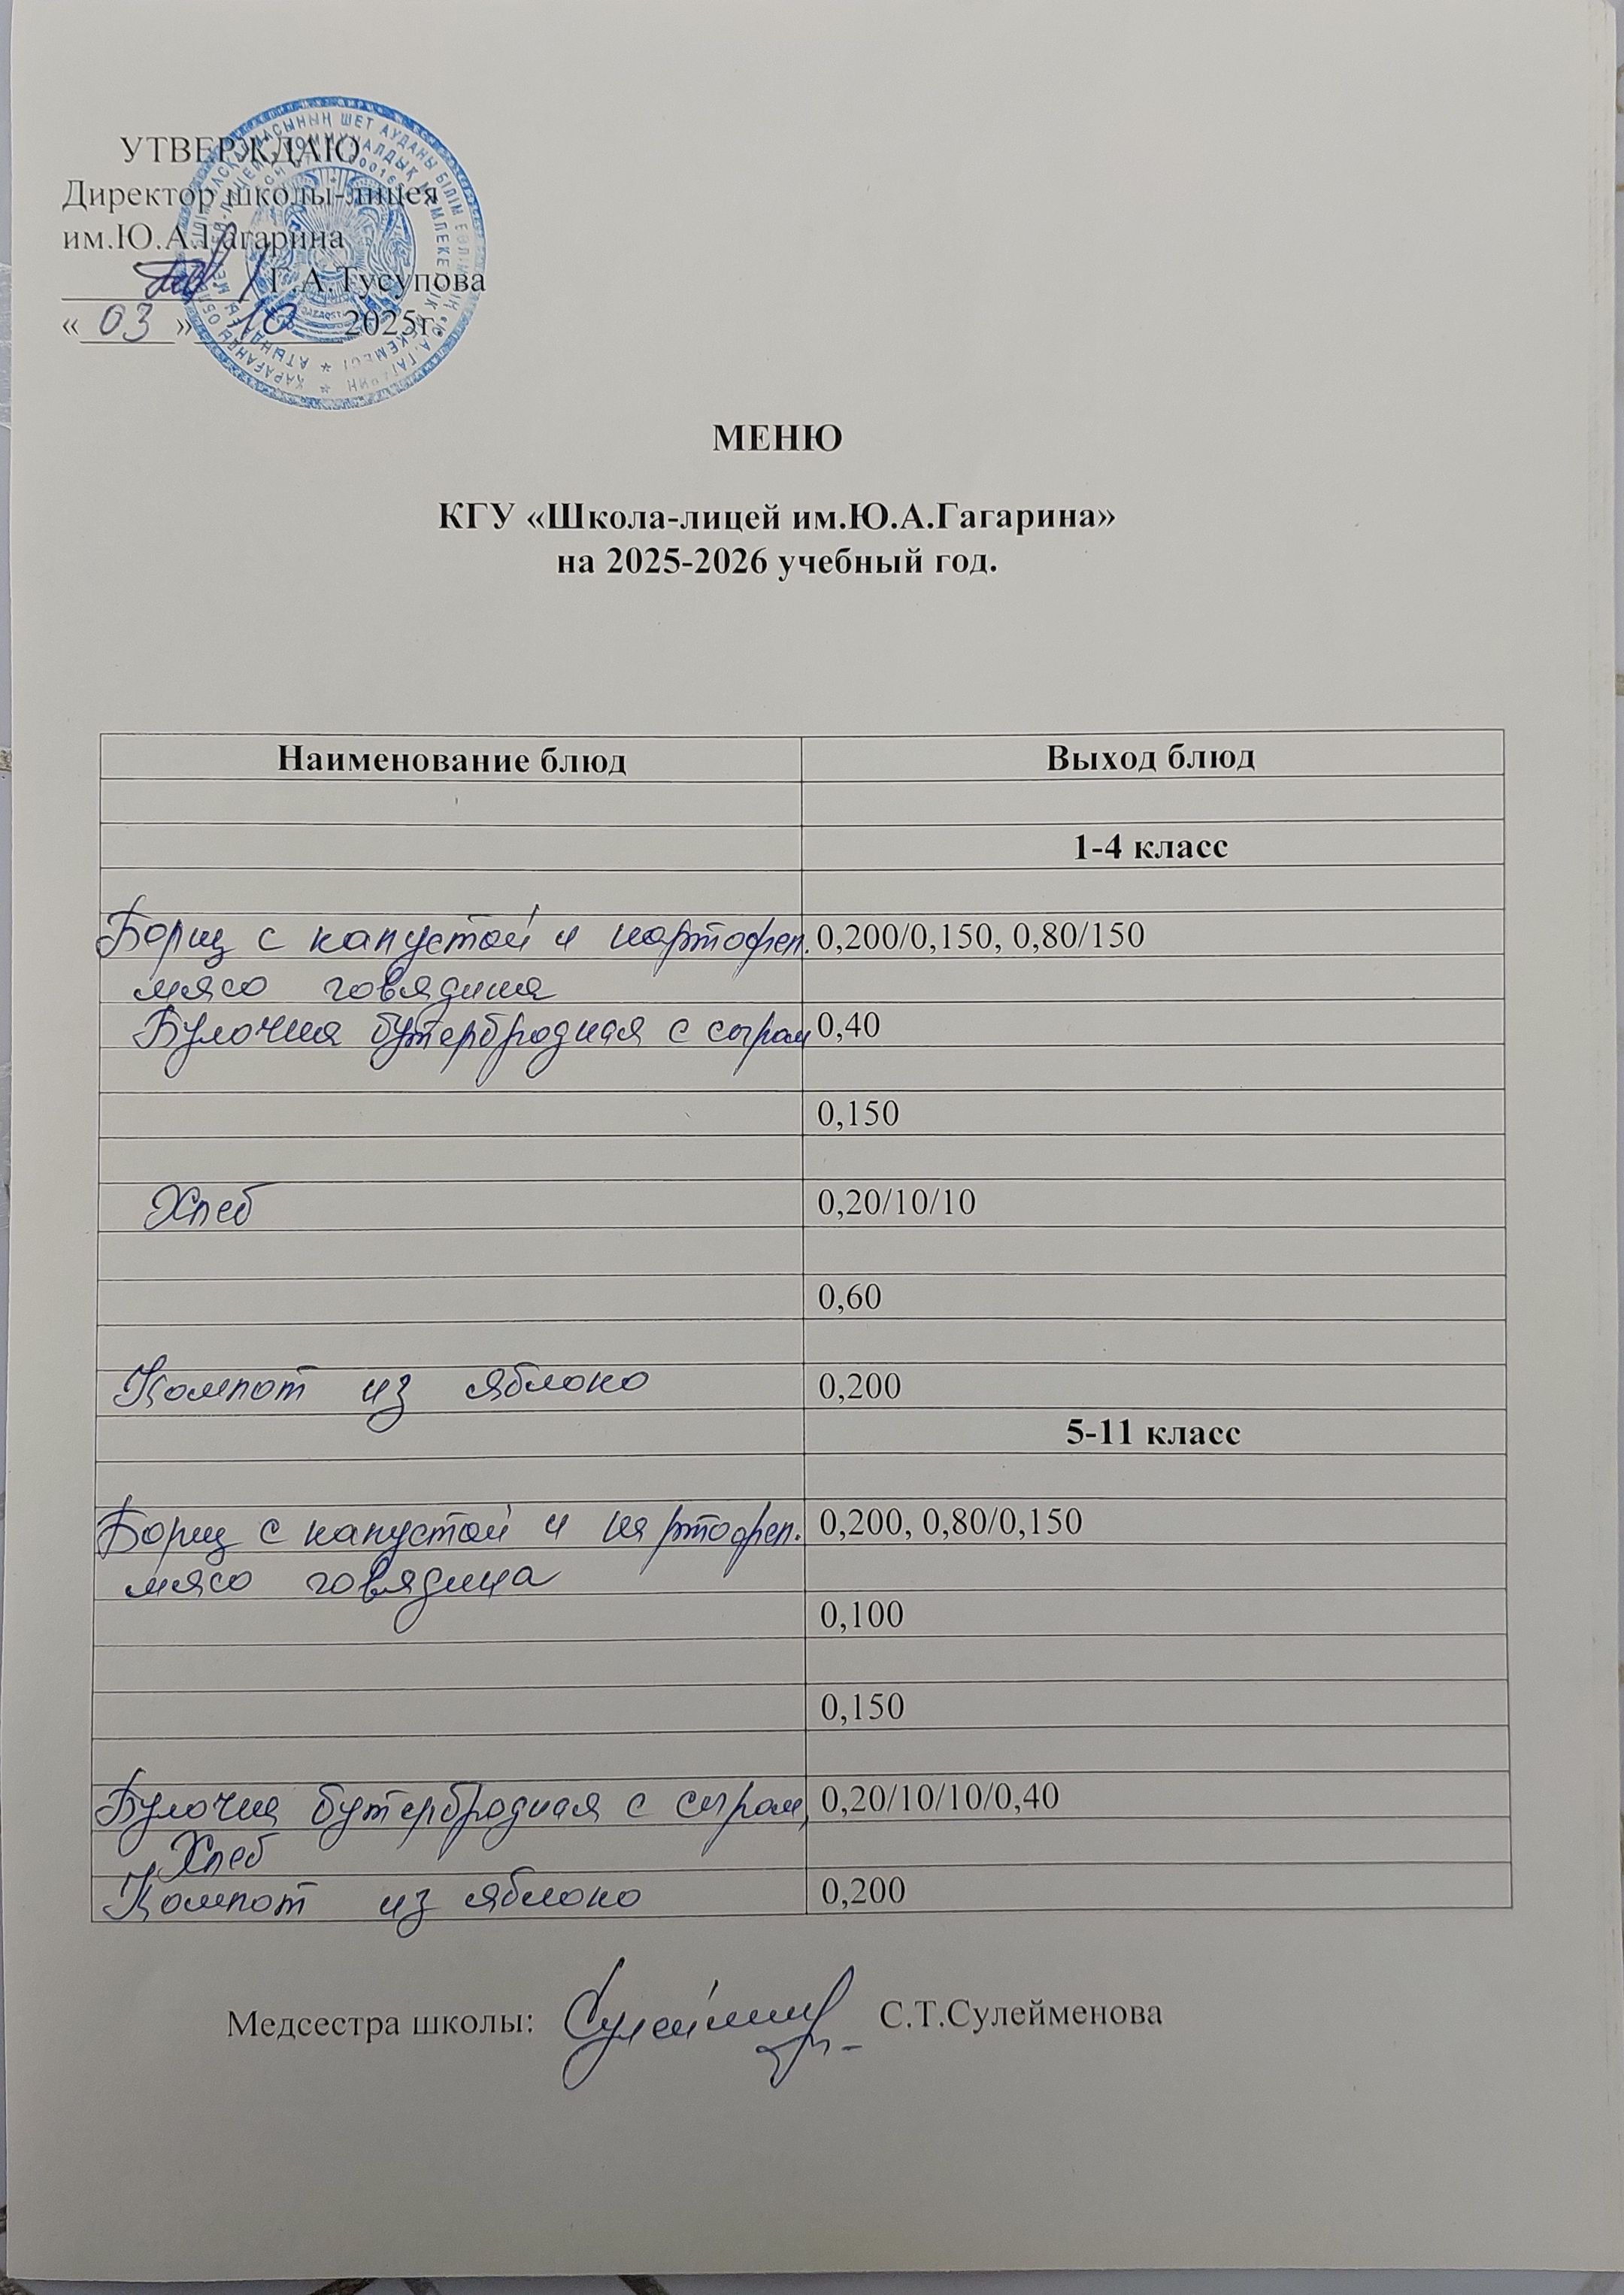 УТВЕРЖДАЮ
Директор школы-лицея
им.Ю.А.Гагарина
Г.А.Тусупова
« 03 » 10 2025г.
МЕНЮ
КГУ «Школа-лицей им.Ю.А.Гагарина»
на 2025-2026 учебный год.
Наименование блюд Выход блюд
1-4 класс
Борщ с капустой и картофел. 0,200/0,150, 0,80/150
мясо говядина
Булочка бутербродная с сыром 0,40
0,150
Хлеб 0,20/10/10
0,60
Компот из яблоко 0,200
5-11 класс
Борщ с капустой и картофел. 0,200, 0,80/0,150
мясо говядина
0,100
0,150
Булочка бутербродная с сыром, 0,20/10/10/0,40
Хлеб
Компот из яблоко 0,200
Медсестра школы: С.Т.Сулейменова